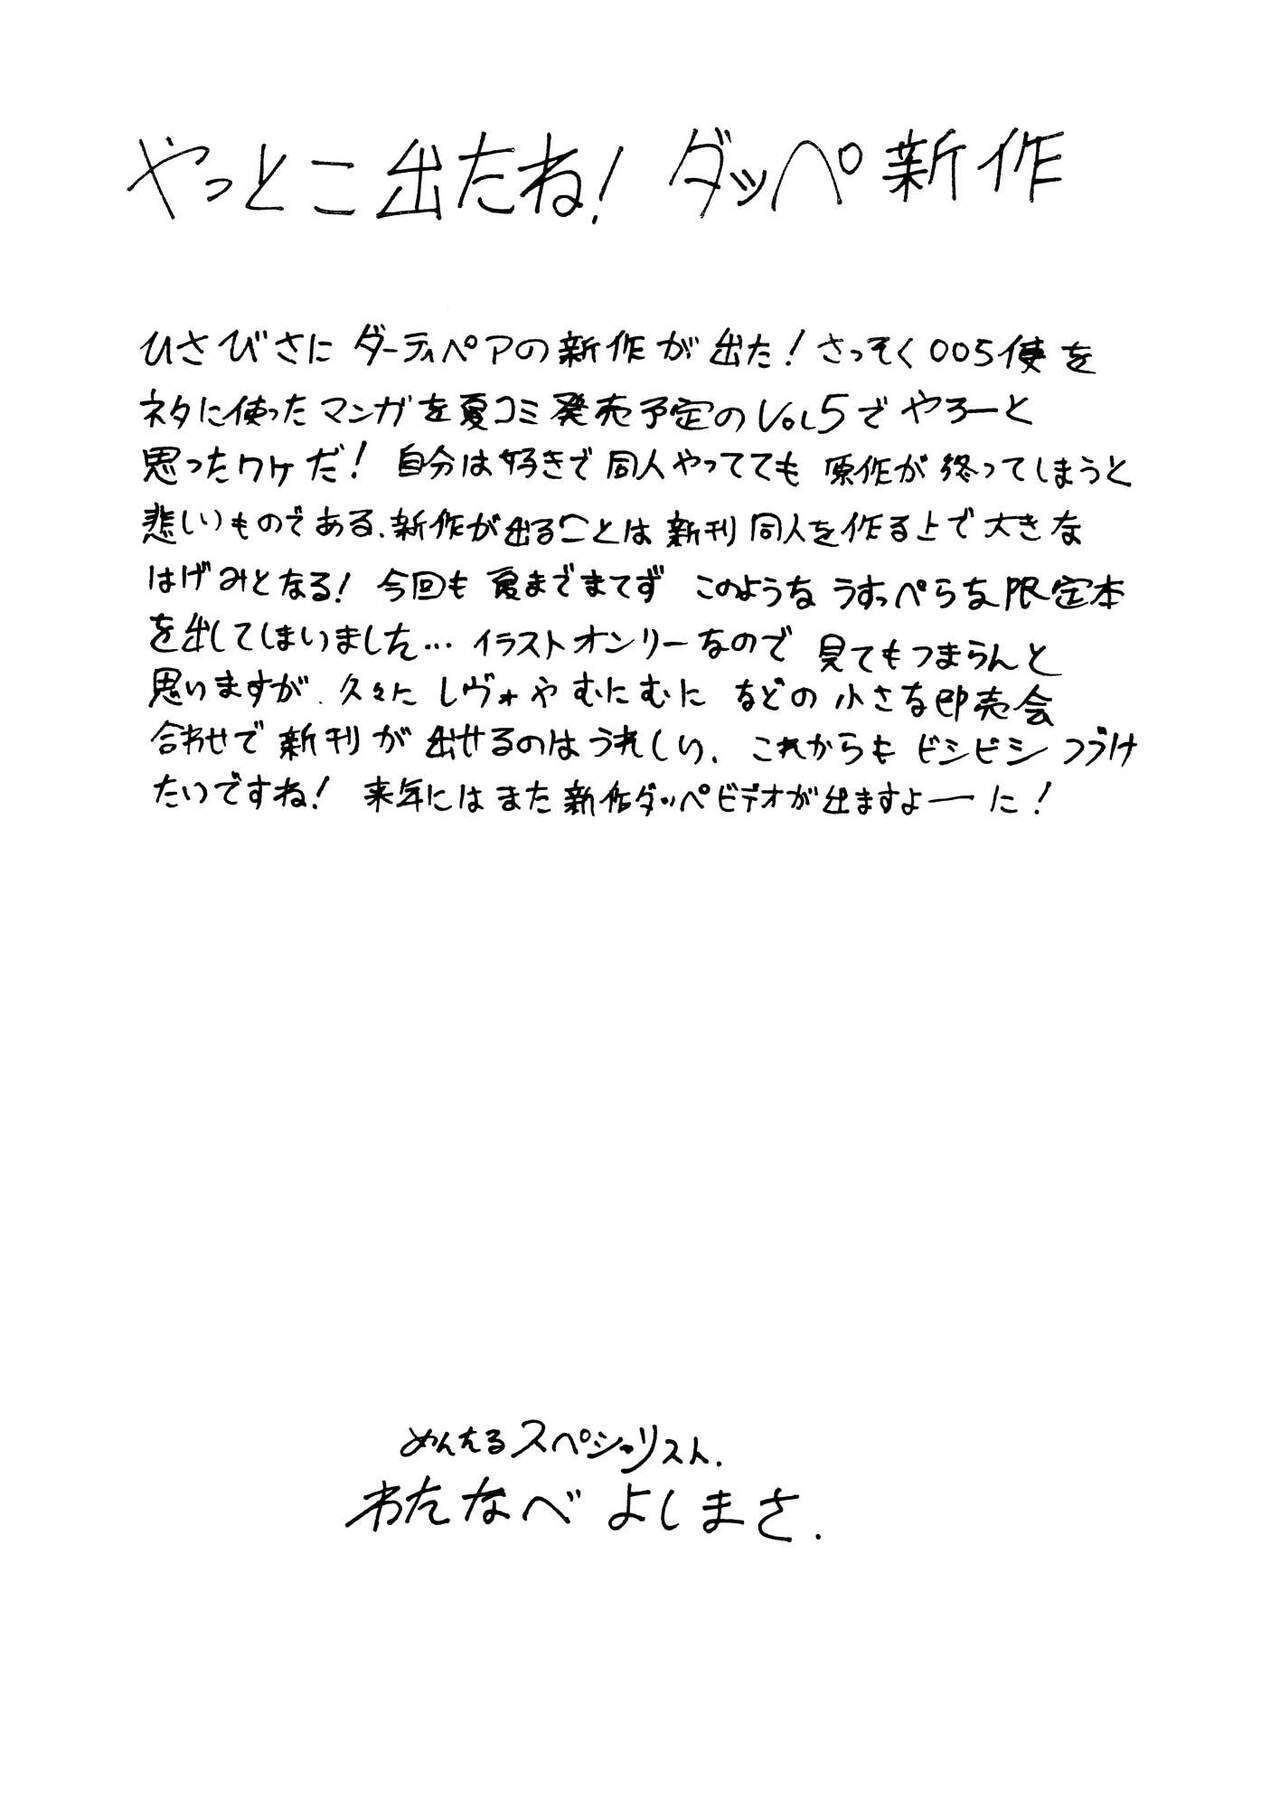 やっとこ出たね! ダッペ新作
ひさびさに ダーティペアの新作が出た! さっそく005便を
ネタに使ったマンガを夏コミ発売予定のVOL5でやろーと
思ったワケだ! 自分は好きで同人やってても 原作が終ってしまうと
悲しいものである.新作が出ることは新刊同人を作る上で大きな
はげみとなる! 今回も夏までまてず このような うすっぺらな限定本
を出してしまいました… イラストオンリーなので 見てもつまらんと
思いますが.久々に レヴォや むにむに などの小さな即売会
合わせで新刊が出せるのはうれしい. これからも ビシビシ つづけ
たいですね! 来年にはまた新作ダッペビデオが出ますよーに!
めんえるスペシャリスト.
わたなべ よしまさ.